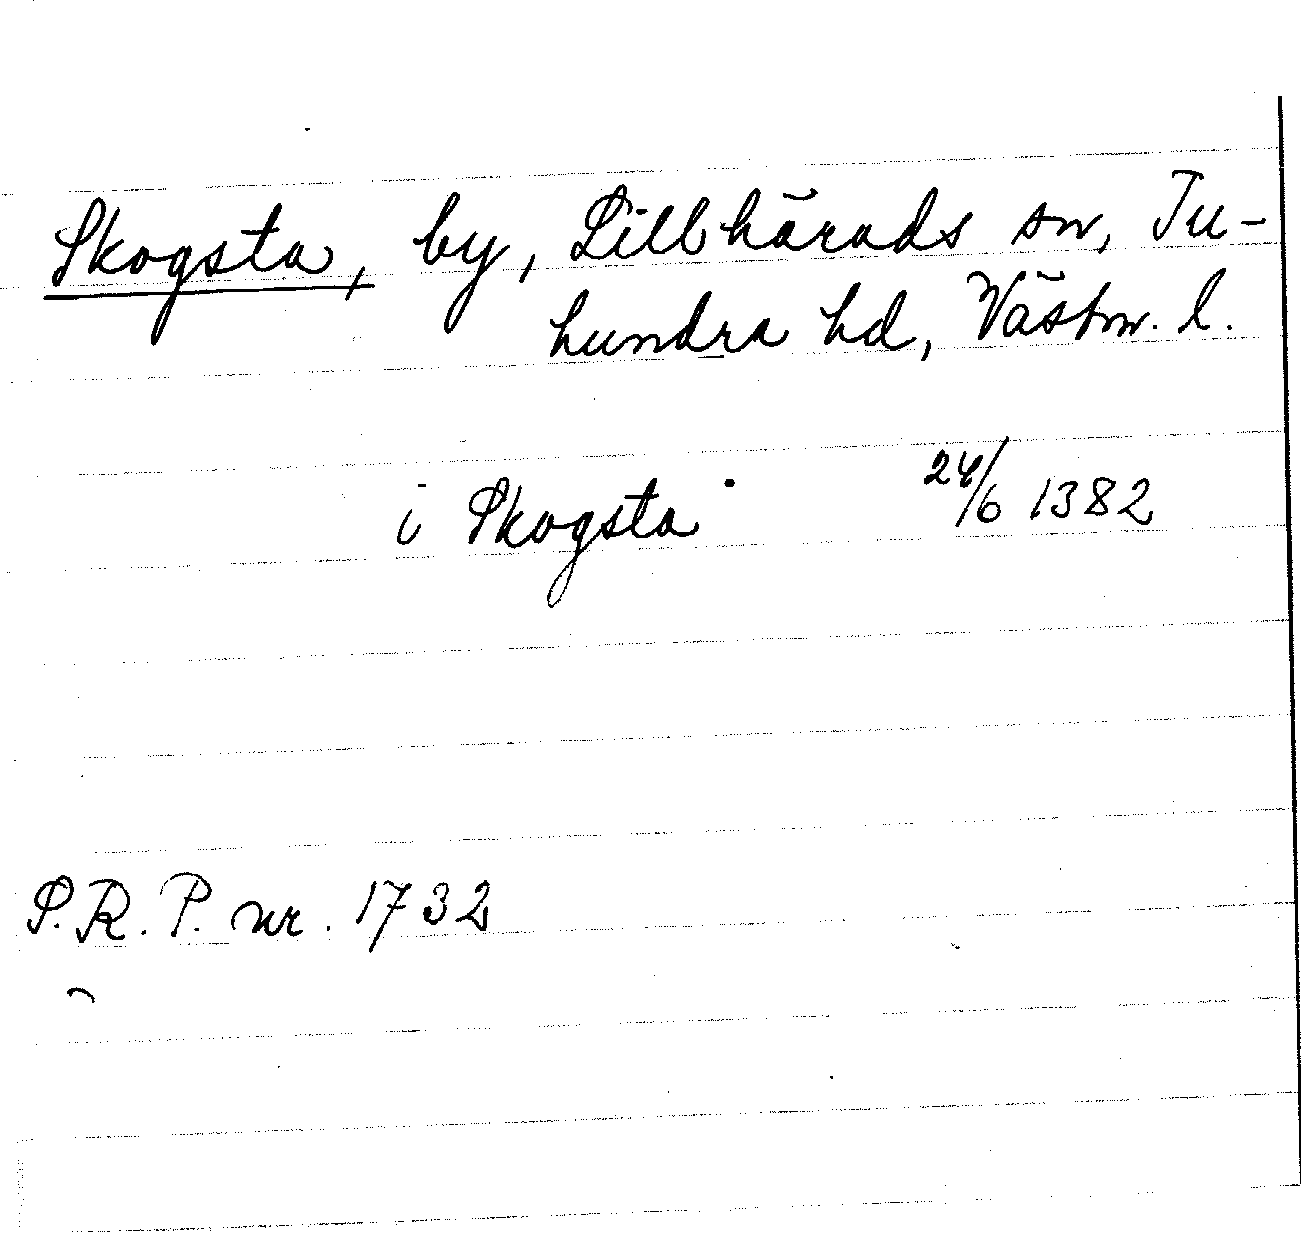 Skogsta, by, Lillhärads sn, Tu-
hundra hd, Västm. l.
i Skogsta 24/6 1382
S.R.P. nr. 1732